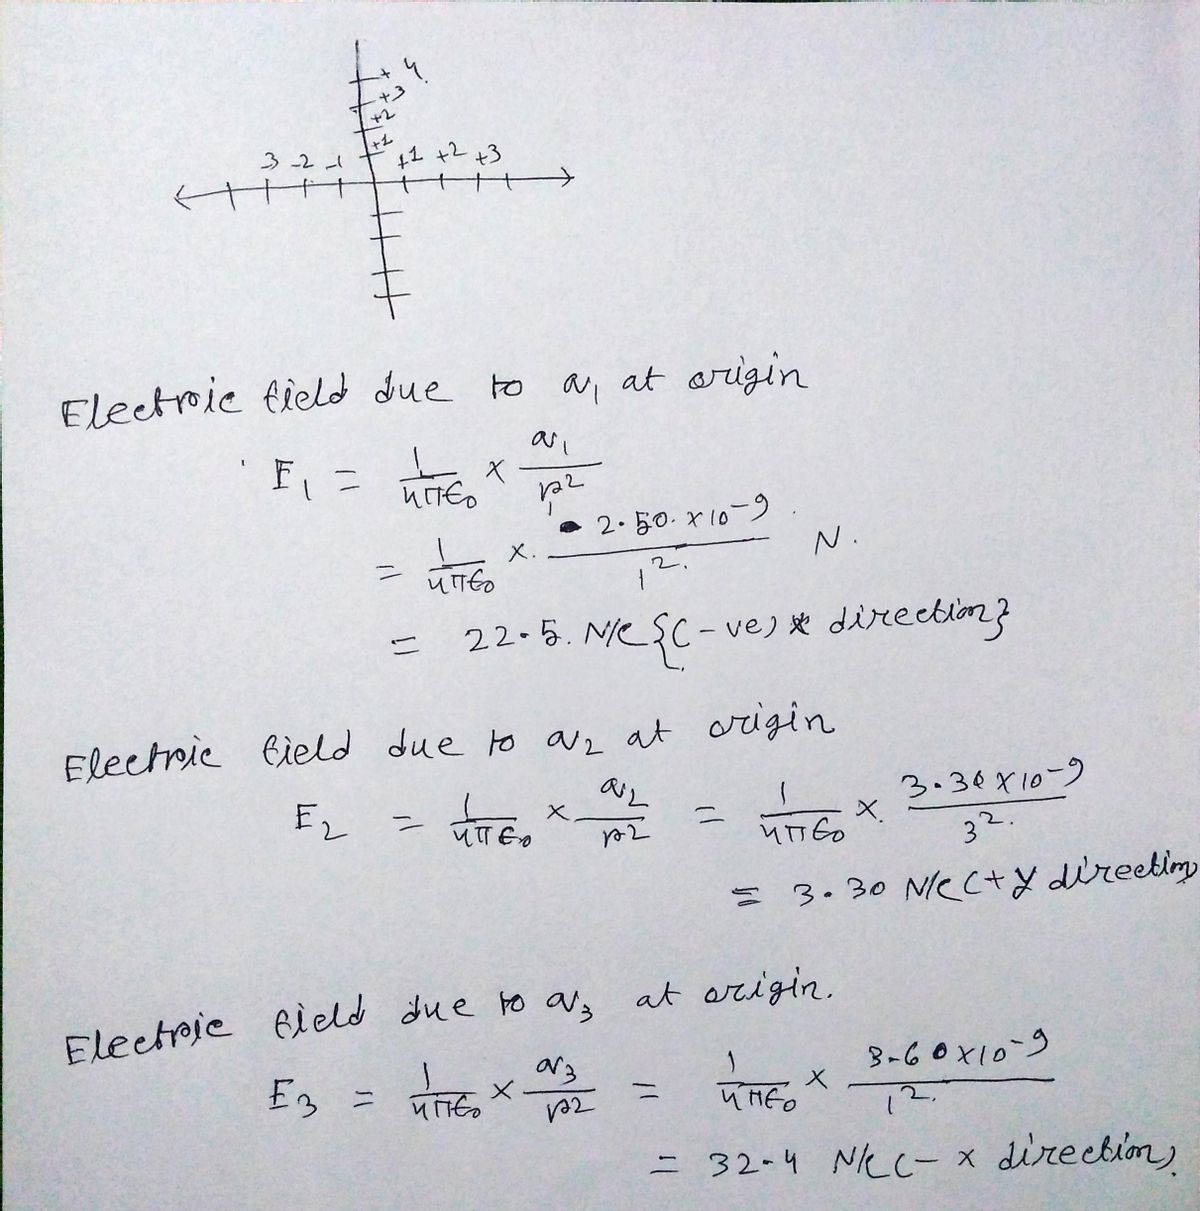 +4
+3
+2
+1
-3 -2 -1 +1 +2 +3
Electric field due to q₁ at origin
E₁ = 1/4π∈₀ × q₁/r²
= 1/4π∈₀ × 2.50 × 10⁻⁹/1² N.
= 22.5 N/C {(-ve) x direction}
Electric field due to q₂ at origin
E₂ = 1/4π∈₀ × q₂/r² = 1/4π∈₀ × 3.30 × 10⁻⁹/3²
= 3.30 N/C (+ y direction)
Electric field due to q₃ at origin.
E₃ = 1/4π∈₀ × q₃/r² = 1/4π∈₀ × 3.60 × 10⁻⁹/1²
= 32.4 N/C (- x direction)